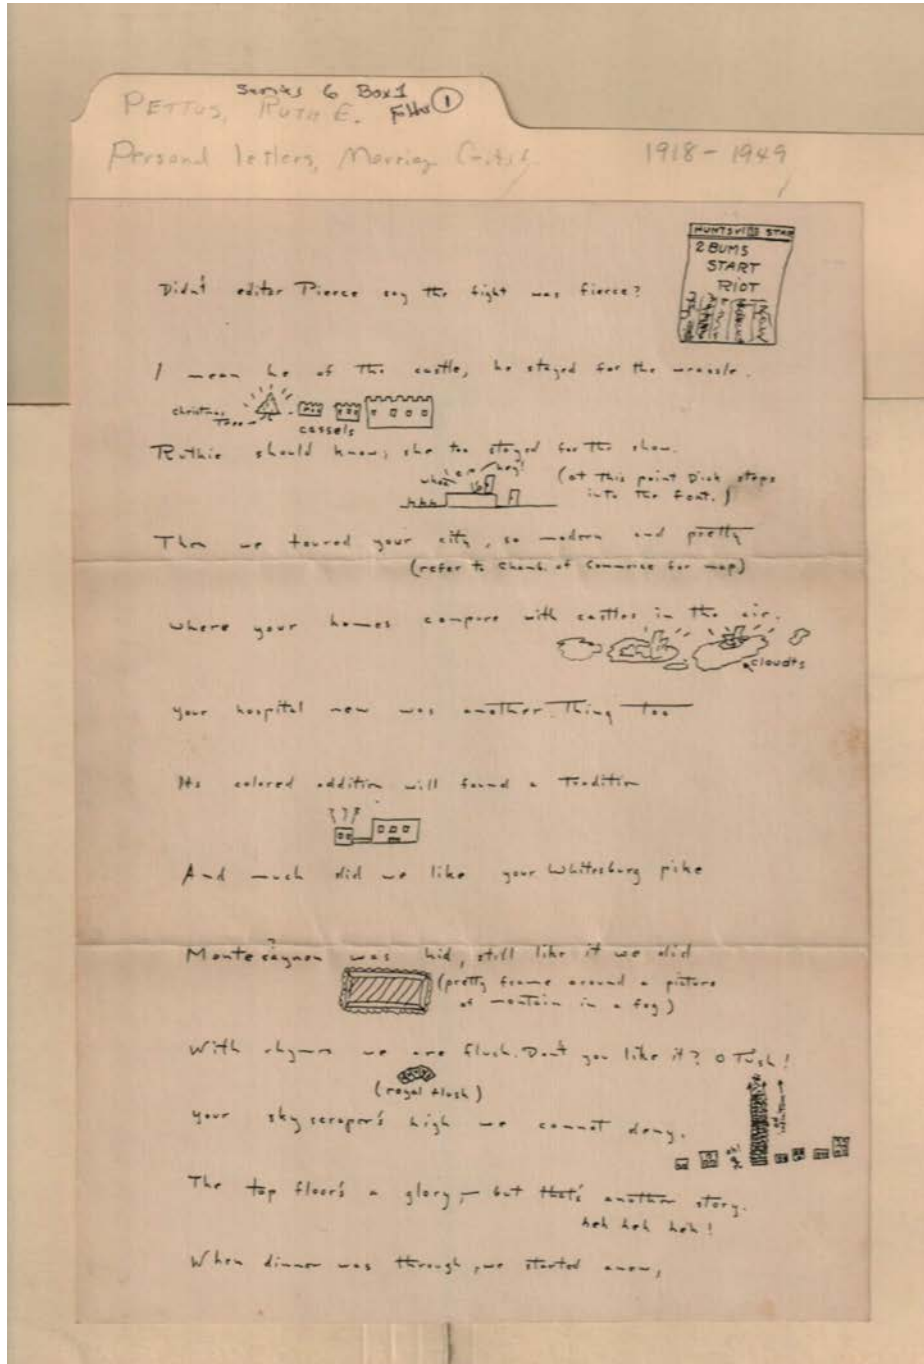 Series 6 Box 1
PETTUS, RUTH E. Folder 1
Personal letters, Marriage
1918 - 1949
HUNTSVILLE STAR
2 BUMS
START
RIOT
Didn't editor Pierce say the fight was fierce?
I mean he of the castle, he stayed for the wrassle.
christmas
Tree
cassels
Ruthie should know; she too stayed for the show.
hey!
(at this point Dick steps
into the font.)
Then we toured your city, so modern and pretty
(refer to Chamb. of Commerce for map)
where your homes compare with castles in the air.
cloudts
your hospital new was another Thing too
Its colored addition will found a Tradition
And much did we like your Whitesburg pike
Montesagnon was hid, still like it we did
?
(pretty frame around a picture
of montain in a fog)
With rhymes we are flush. Don't you like it? O Tush!
(royal flush)
your skyscraper's high we cannot deny.
The top floor's a glory,- but that's another story.
heh heh heh!
When dinner was through, we started anew,